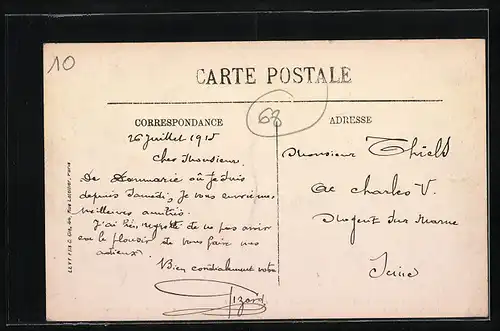 10
CARTE POSTALE
68
CORRESPONDANCE
ADRESSE
26 Juillet 1915
Cher Monsieur
De Dammarie où je suis
depuis Samedi, Je vous envoie mes
meilleures amitiés.
J'ai très regretté de ne pas avoir
eu le plaisir de vous faire mes
adieux.
Bien cordialement votre
Monsieur Thield
Charles V.
Nogent sur Marne
Seine